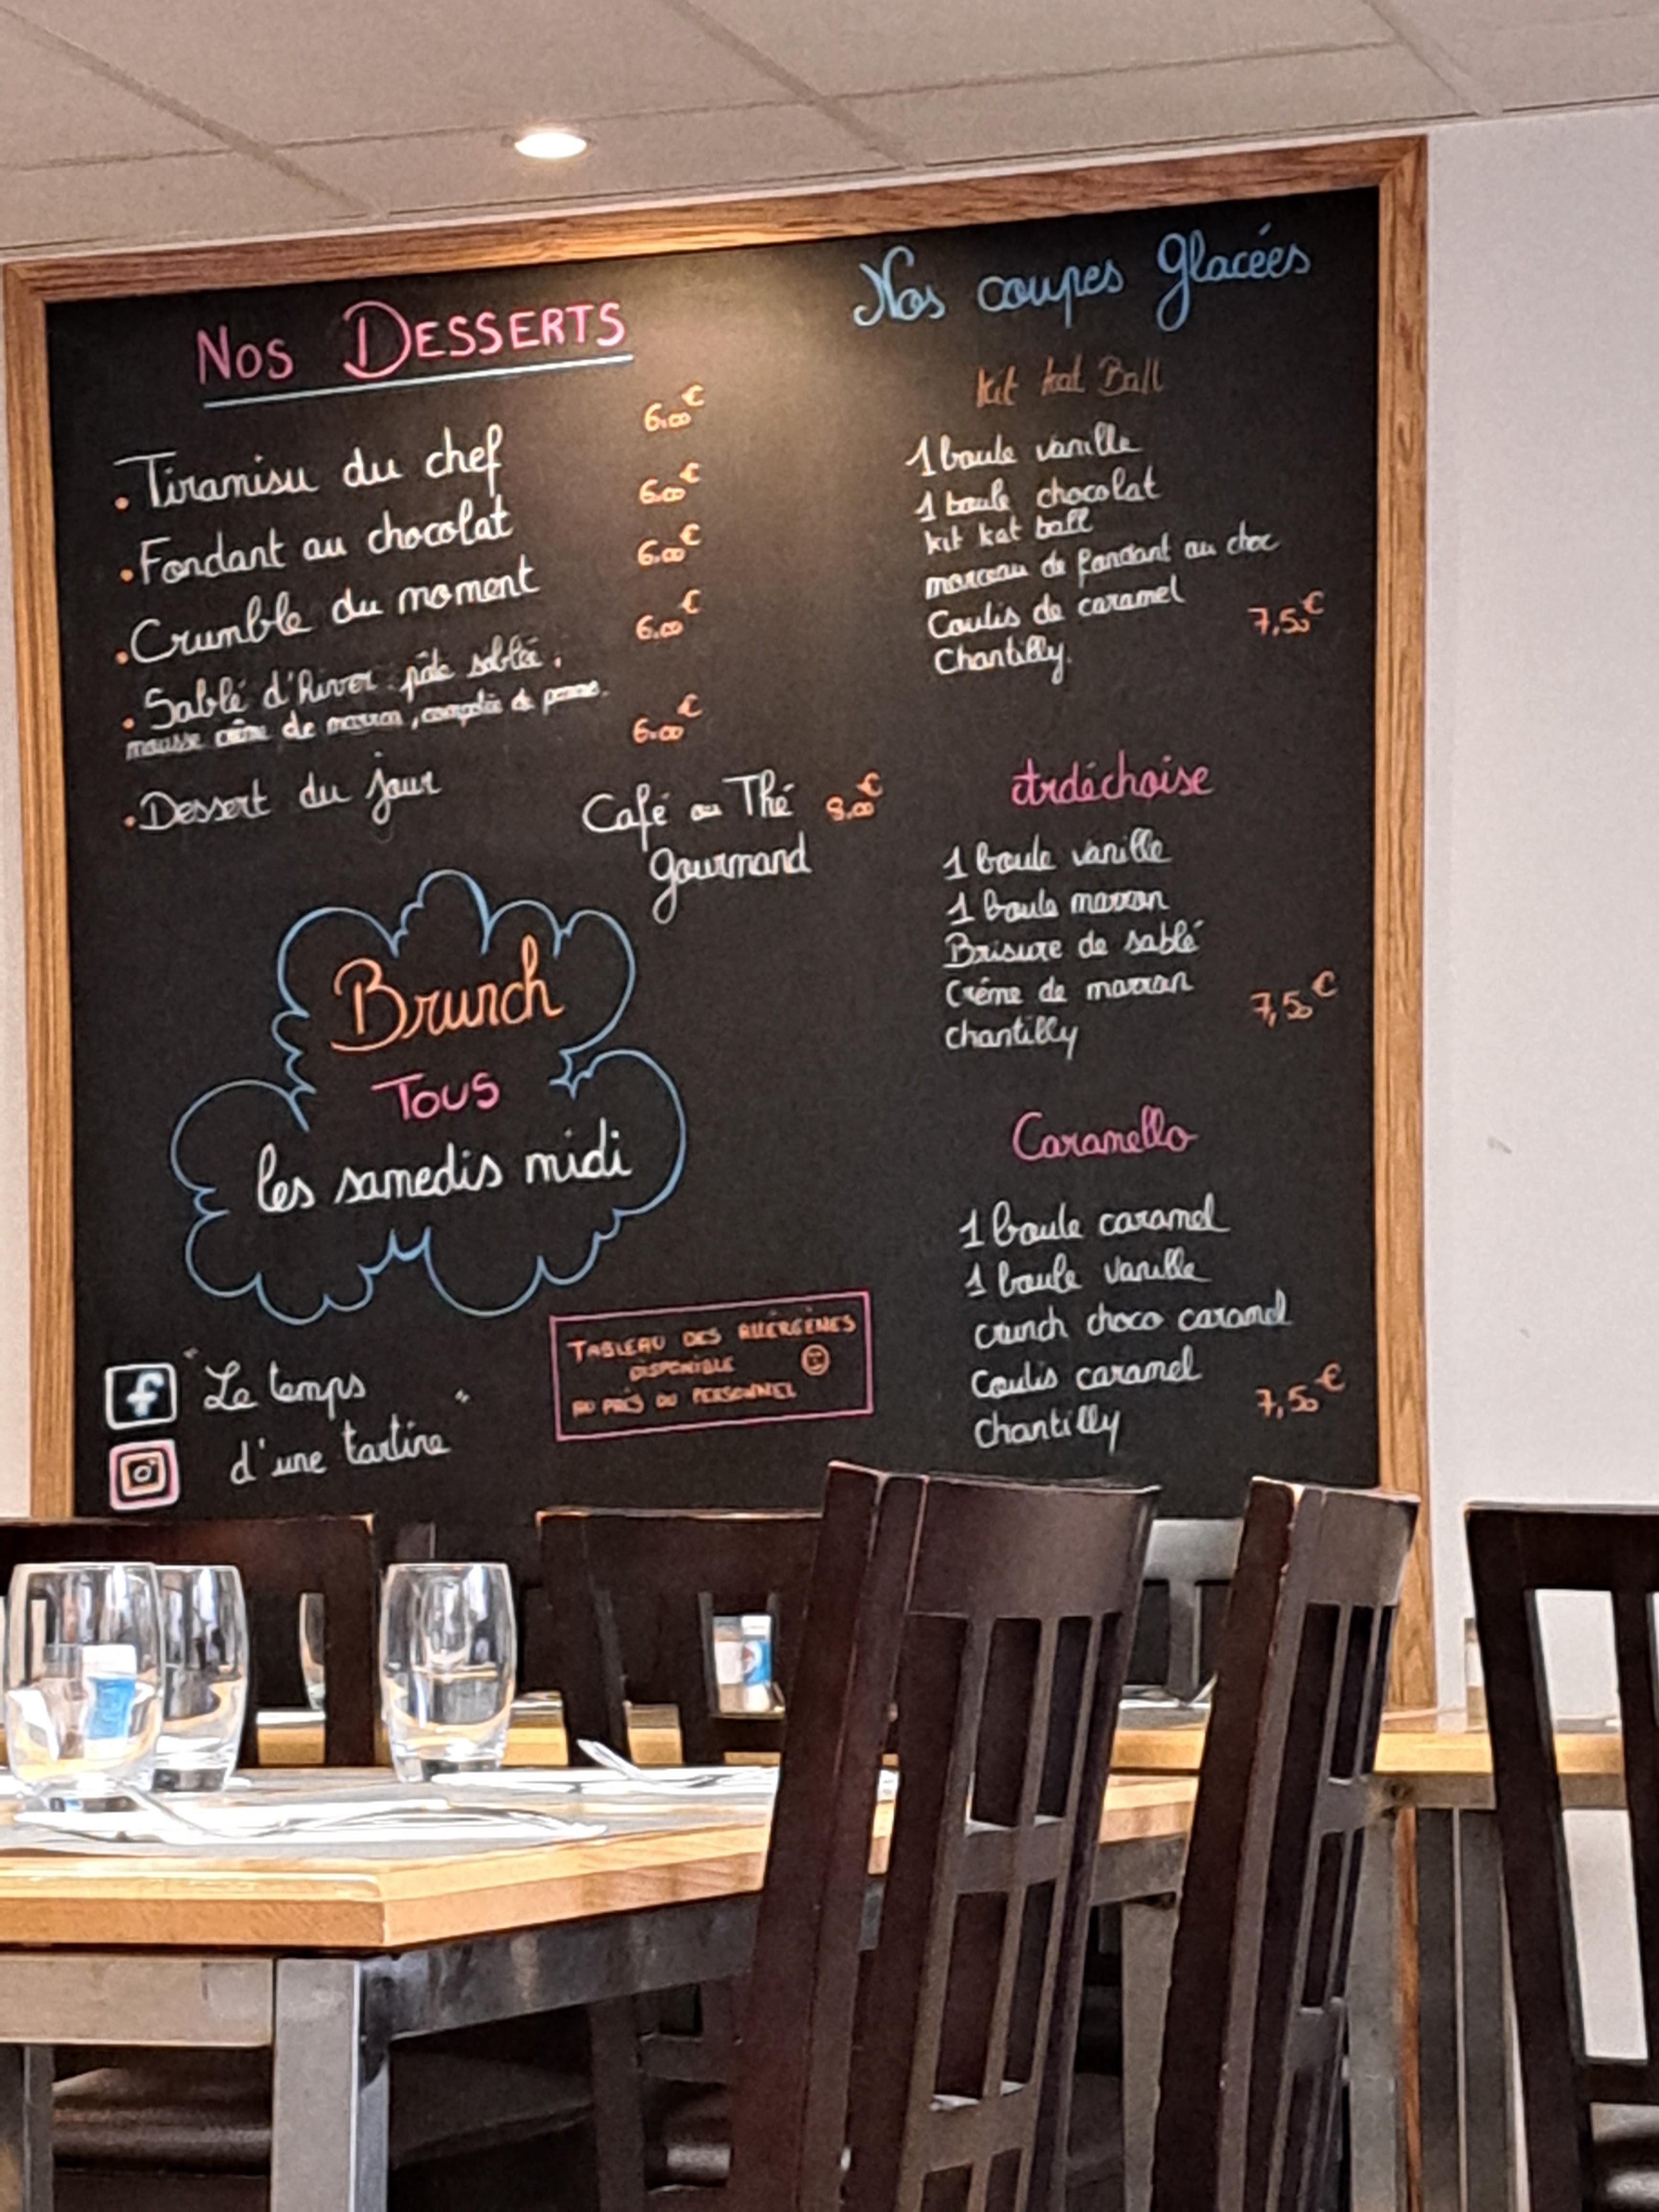 Nos Desserts
. Tiramisu du chef 6.00€
. Fondant au chocolat 6.00€
. Crumble du moment 6.00€
. Sablé d'hiver : pâte sablée, 6.00€
mousse crème de marron, compotée de poires.
. Dessert du jour 6.00€
Café ou Thé 8.00€
Gourmand
Brunch
Tous
les samedis midi
f "Le temps "
d'une tartine
TABLEAU DES ALLERGÈNES
DISPONIBLE
AU PRÈS DU PERSONNEL
Nos coupes Glacées
Kit kat Ball
1 boule vanille
1 boule chocolat
kit kat ball
morceau de fondant au choc
Coulis de caramel
Chantilly. 7,50€
Ardéchoise
1 boule vanille
1 boule marron
Brisure de sablé
Crème de marron
chantilly 7,50€
Caramello
1 boule caramel
1 boule vanille
crunch choco caramel
Coulis caramel
Chantilly 7,50€